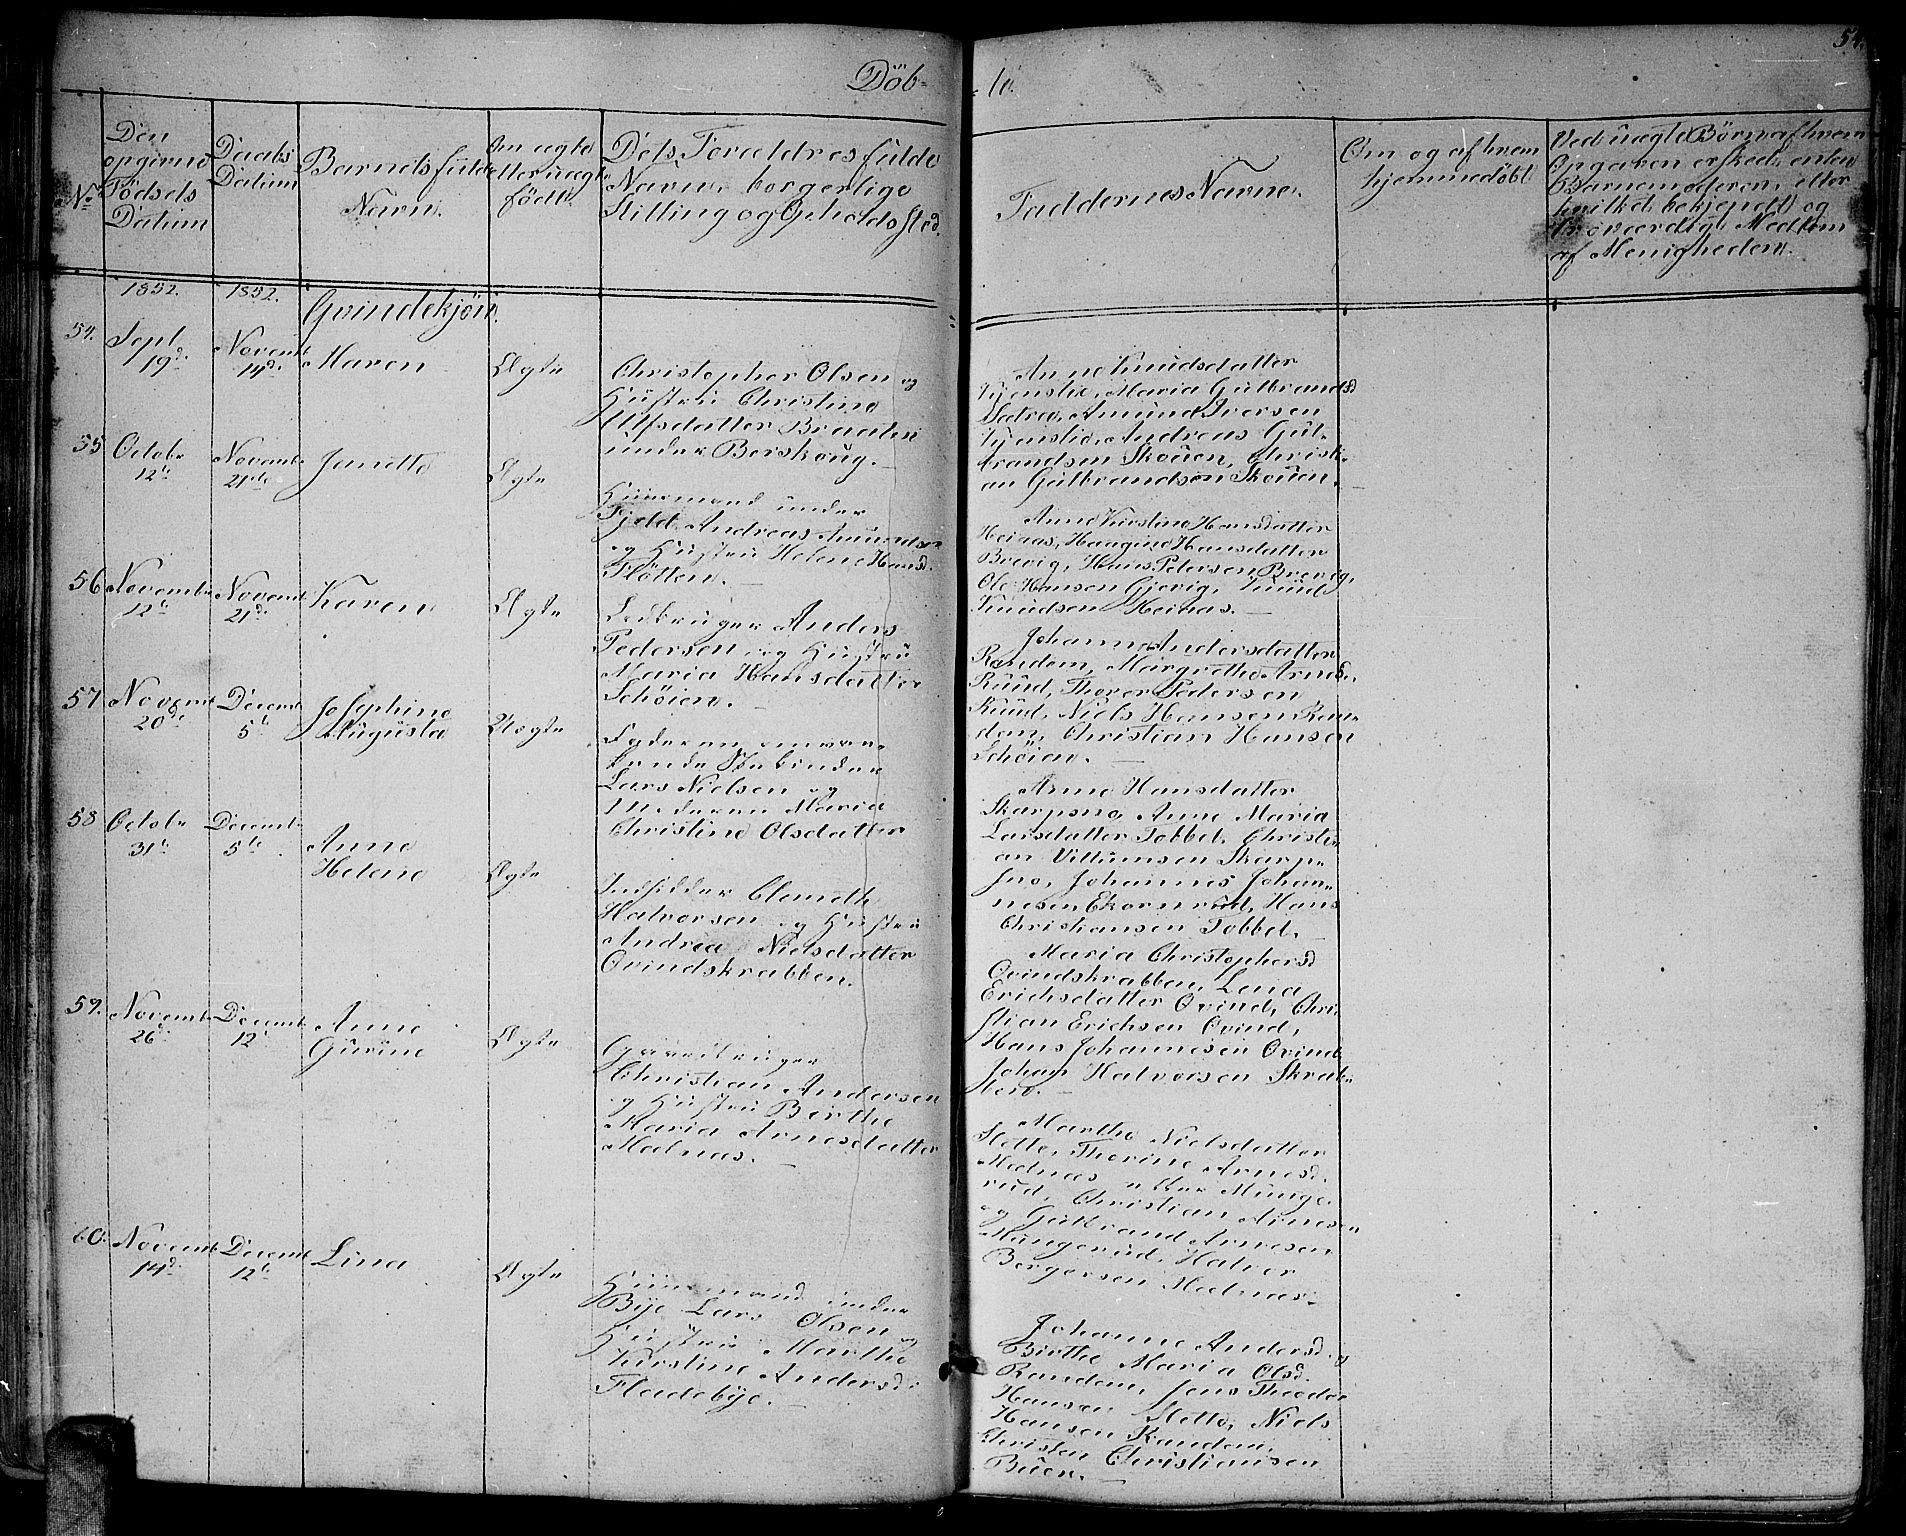 54.
Döb-
- te.
No
Den
opgivne
Födsels
Datum
Daabs
Datum
Barnets fulde
Navn.
Om ægte
eller uægte
födt.
Dets Forældres fulde
Navn, borgerlige
Stilling og Opholdssted.
Faddernes Navne.
Om og af hvem
hjemmedöbt
Ved uægte Börn af hvem
Opgaven er skeet, enten
Barnemoderen, eller
hvilket bekjendt og
troværdigt Medlem
af Menigheden.
1852.
1852.
Qvindekjön.
54.
Sept.
19d.
Novemb
14d.
Maren
Ægte
Christopher Olsen og
Hustru Christine
Ulfsdatter Braaten
under Berskoug.
Anne Knudsdatter
Tjenslie, Maria Gulbrandsd
Sætre, Amund Iversen
Tjenslie, Andreas Gul-
brandsen Skouen, Christi-
an Gulbrandsen Skouen.
55
Octobr
12te
Novemb.
21de
Janette
Ægte
Huusmand under
Fjeld, Andreas Amundsen
og Hustru Helene Hansd.
Fløtten.
Anne Kirstine Hansdatter
Heinas, Haagine Hansdatter
Brevig, Hans Petersen Brevig,
Ole Hansen Gjevig, Knud
Knudsen Heinas.
56
Novembr
12te
Novemb
21d.
Karen
Ægte
Leibruger Anders
Pedersen og Hustru
Maria Hansdatter
Schöien.
Johanne Andersdatter
Randem, Margrethe Arnsd.
Ruud, Thorer Pedersen
Ruud, Niels Hansen Ran-
dem, Christian Hansen
Schöien.
57
Novemb
20de
Decemb
5te
Josephine
Augusta
Uægte
Faderen omvan-
Lars Nielsen og
Moderen Maria
Christine Olsdatter
Anne Hansdatter
Skarpsno, Anne Maria
Larsdatter Tobbel, Christi-
an Villumsen Skarp-
sno, Johannes Johan-
nesen Ekornrud, Hans
Christiansen Tobbel.
58
Octobr
31te
Decembr
5te
Anne
Helene
Ægte
Indsidder Clemeth
Halvorsen og Hustru
Andrea Nielsdatter
Ovindskrabben.
Maria Christophersd
Ovindskrabben, Lena
Erichsdatter Ovind, Chri-
stian Erichsen Ovind,
Hans Johannesen Ovind
Johan Halvorsen Skrab-
59.
Novembr
26de
Decemb.
12te
Anne
Gurine
Ægte
Gaardbruger
Christian Andersen
og Hustru Berthe
Maria Arnesdatter
Melnas.
Marthe Nielsdatter
Slette, Thorine Arnesd.
Melnas eller Munge-
rud, Christian Arnesen
og Gulbrand Arnesen
Mungerud, Halvor
Bergersen Melnas.
60.
Novemb
14de
Decemb
12te
Lina
Ægte
Huusmand under
Bye Lars Olsen og
Hustru Marthe
Kirstine Andersd.
Fladebye.
Johanne Andersd. og
Birthe Maria Olsd.
Randem, Jens Theodor
Hansen Slette, Niels
Hansen Randem,
Christen Christiansen
Buer.